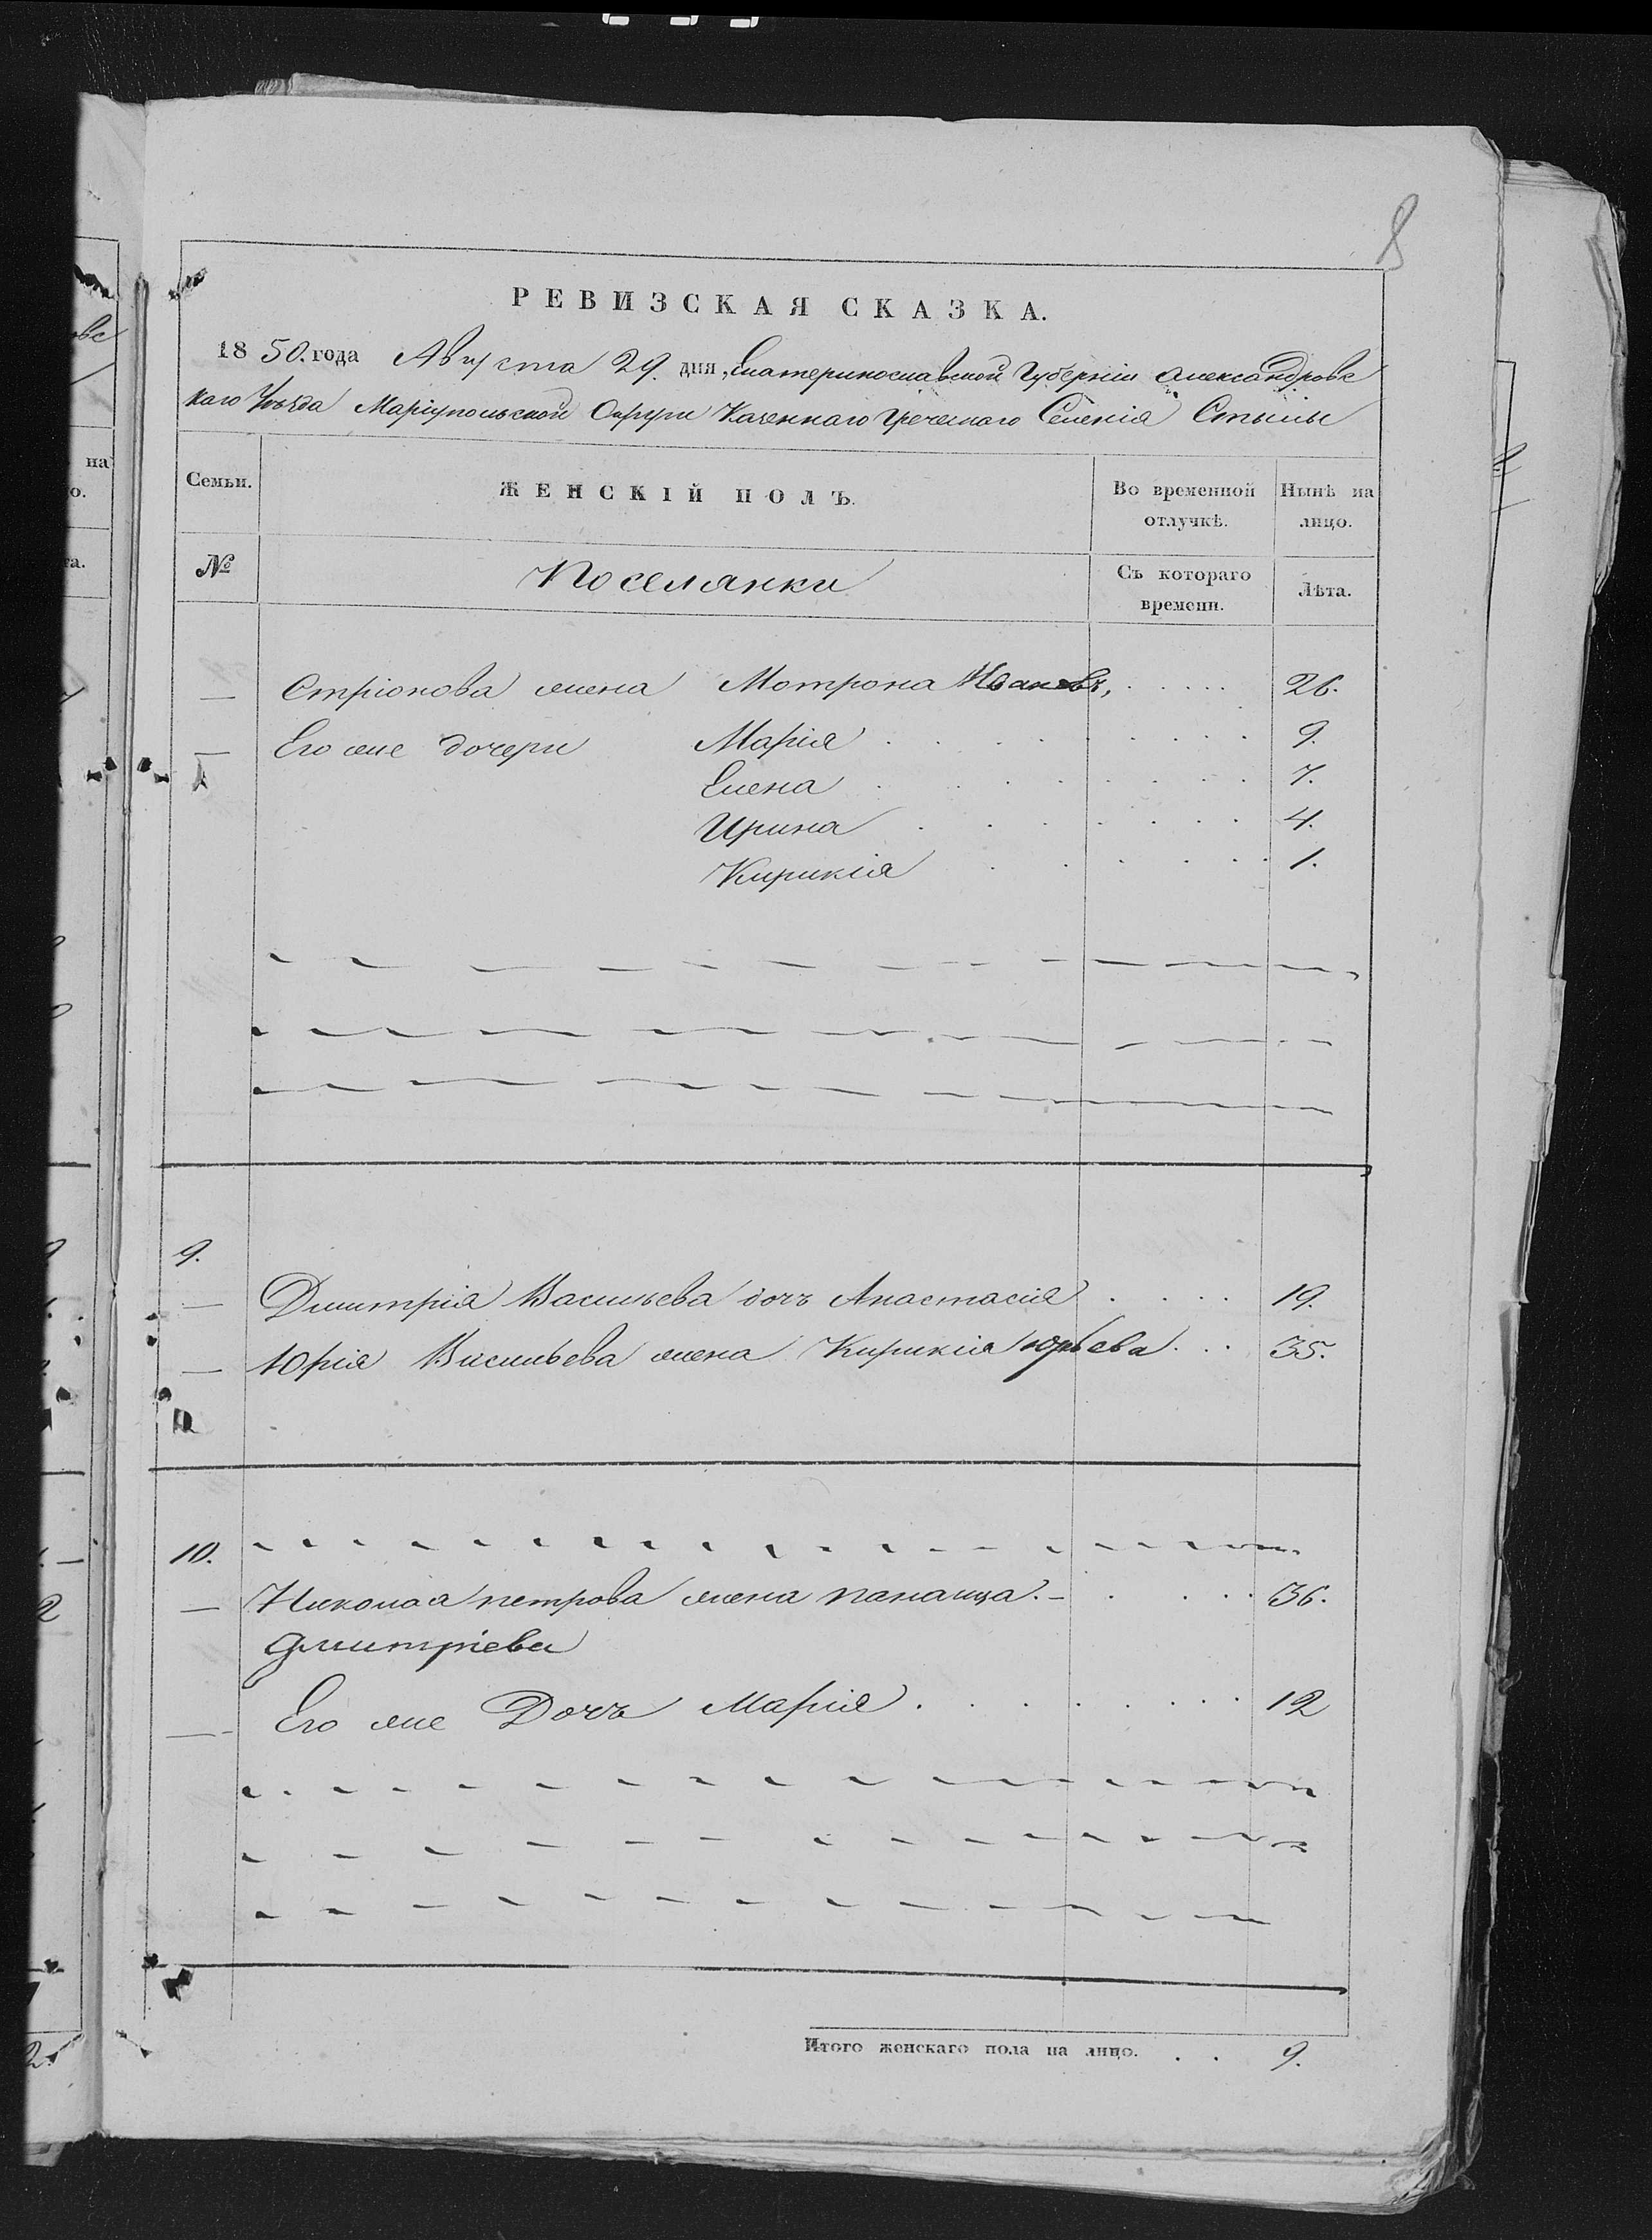 8
РЕВИЗСКАЯ СКАЗКА.
1850. года Августа 29. дня, Екатеринославской Губерніи Александровс
каго Уѣзда Маріупольской Округи Казеннаго Греческаго Селенія Стылы
Семьи. ЖЕНСКІЙ ПОЛЪ. Во временной отлучкѣ. Нынѣ на лицо.
№ Поселянки Съ котораго времени. Лѣта.
— Стріонова жена Мотрона Иванов, 26.
— Его же дочери Марія 9.
Елена 7.
Ирина 4.
Кирикія 1.
9.
— Дмитрія Васильева дочь Анастасія 19.
— Юрія Васильева жена Кирикія Юрьева 35.
10.
— Николая петрова жена панаица. 36.
Дмитріева
— Его же Дочь Марія 12
Итого женскаго пола на лицо. 9.